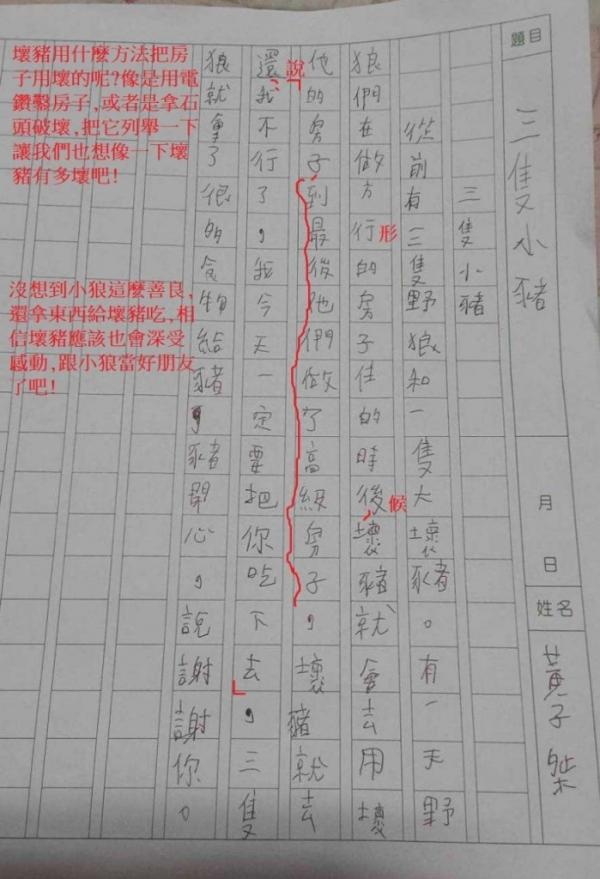 題目 三隻小豬 月 日 姓名 黃子
三隻小豬
從前有三隻野狼和一隻大壞豬。有一天野
狼們在做方行的房子佳的時後壞豬就會去用壞
形
候
他的房子到最後他們做了高級房子,壞豬就去
說
還我不行了,我今天一定要把你吃下去,三隻
狼就拿了很的食物給豬,豬開心,說謝謝你。
壞豬用什麼方法把房
子用壞的呢?像是用電
鑽鑿房子,或者是拿石
頭破壞,把它列舉一下
讓我們也想像一下壞
豬有多壞吧!
沒想到小狼這麼善良,
還拿東西給壞豬吃,相
信壞豬應該也會深受
感動,跟小狼當好朋友
了吧!